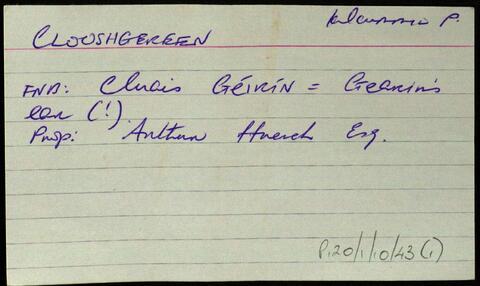 Kilcummin P.
CLOOSHGEREEN
FNB: Cluais GÉIRÍN = Gearin's
ear (!).
Prop: Arthur Esq.
P.20/1/10/43(1)